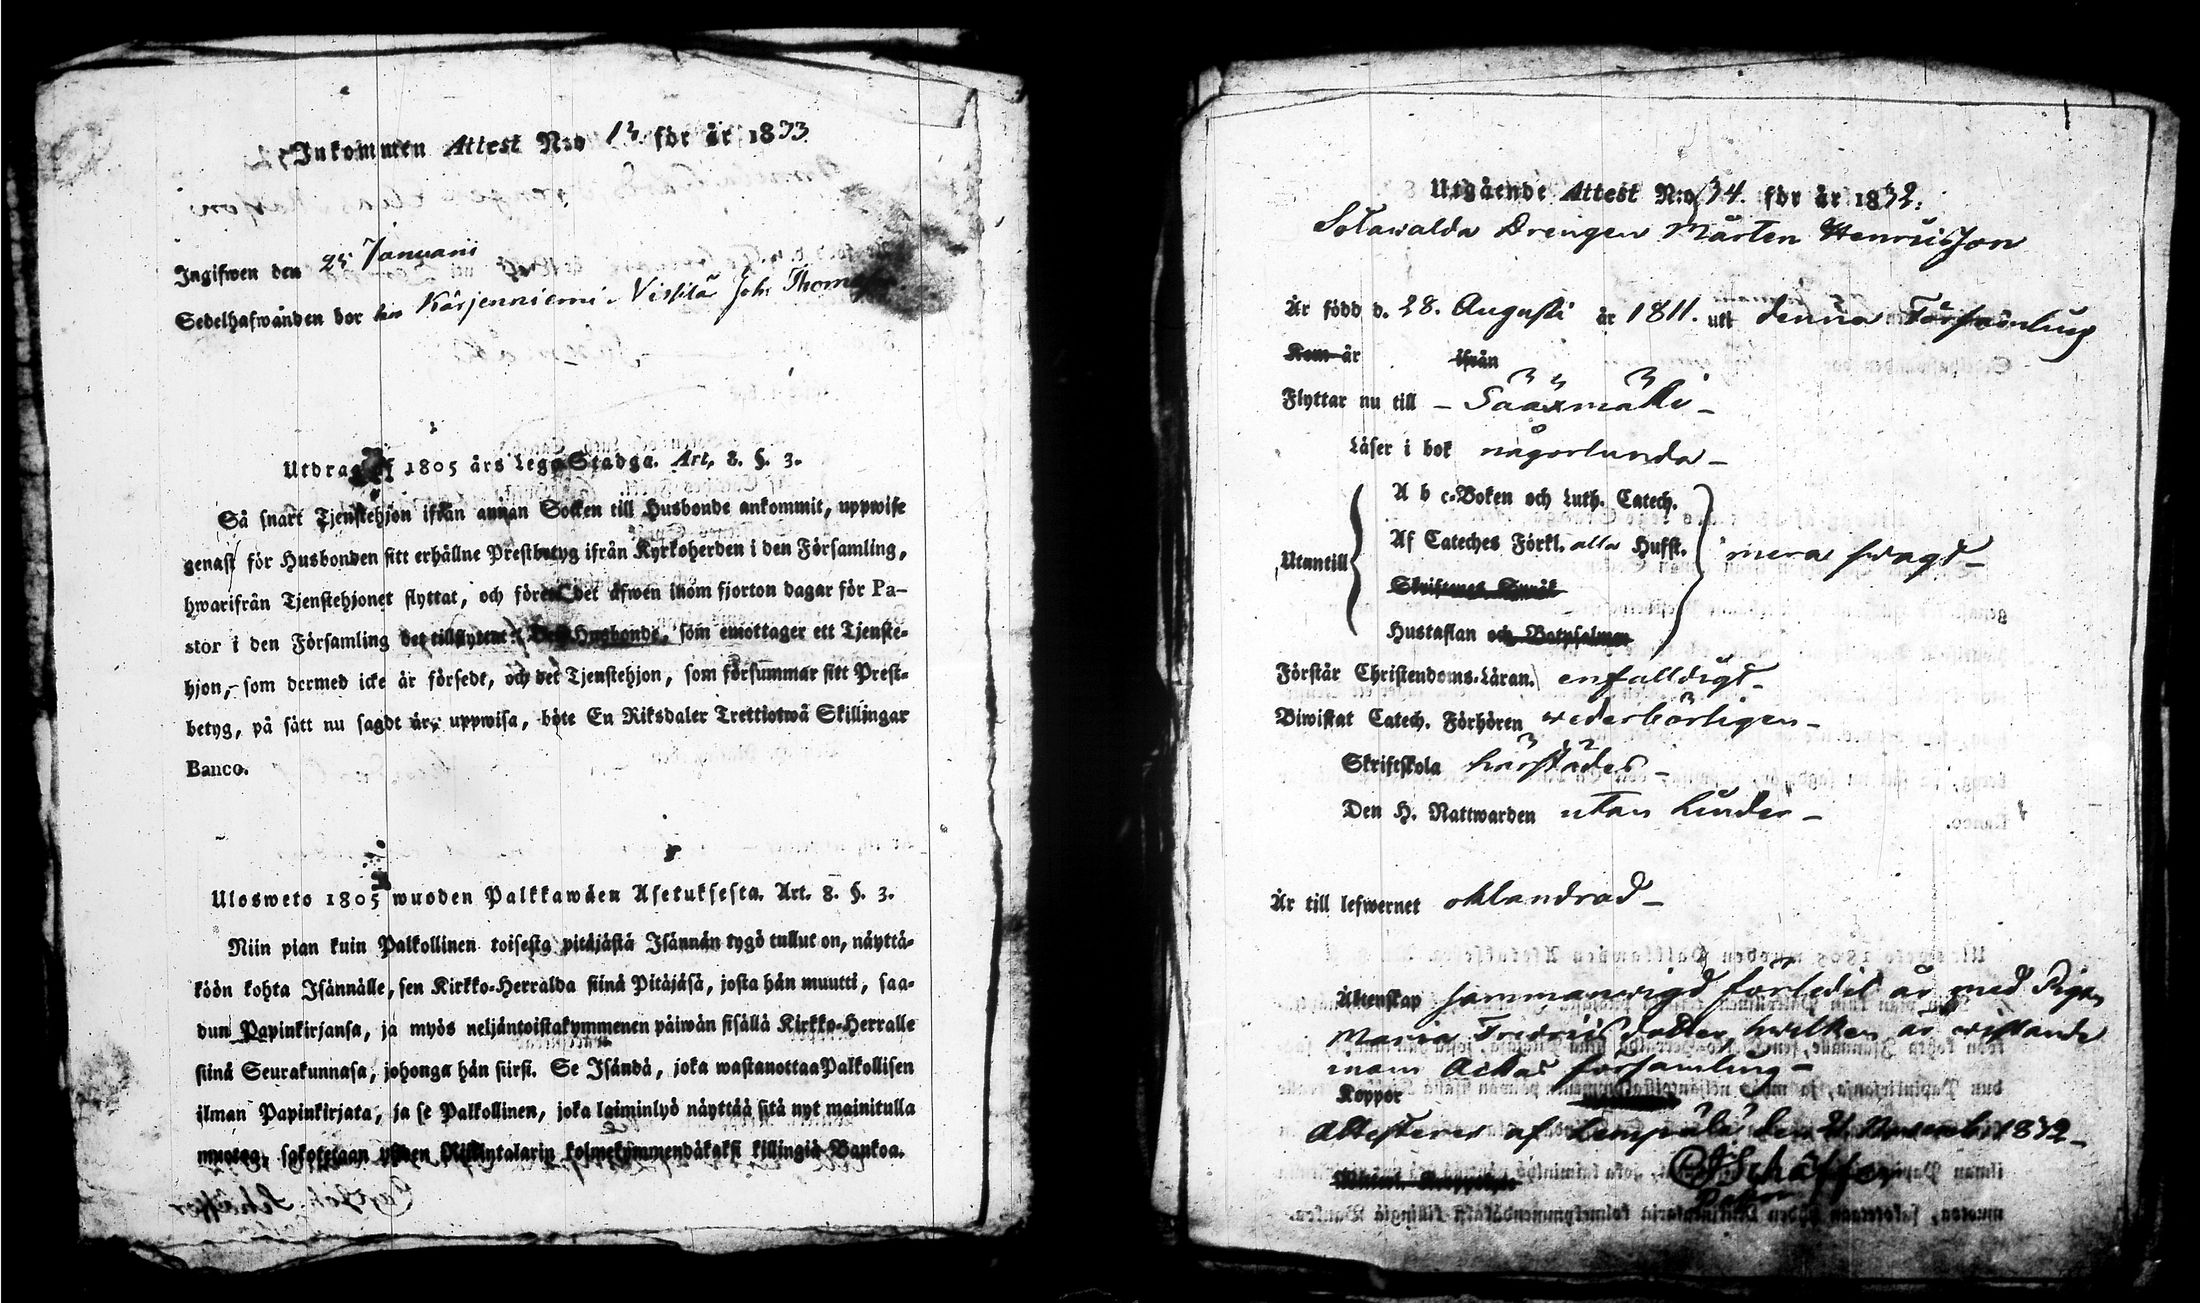 Inkommen Attest N:o 13 för år 1833
Ingifwen den 25 Januari
Sedelhafwanden bor hos Kärjenniemi Joh: Thom
Utdrag af 1805 års Lego-Stadga. Art. 8. §. 3.
Så snart Tjenstehjon ifrån annan Socken till Husbonde ankommit, uppwise
genast för Husbonden sitt erhållne Prestbetyg ifrån Kyrkoherden i den Församling,
hwarifrån Tjenstehjonet flyttat, och förete det äfwen inom fjorton dagar för Pa-
stor i den Församling det tillflyttat. Den Husbonde, som emottager ett Tjenste-
hjon, som dermed icke är försedt, och det Tjenstehjon, som försummar sitt Prest-
betyg, på sätt nu sagdt är, uppwisa, böte En Riksdaler Trettiotwå Skillingar
Banco.
Ulosweto 1805 wuoden Palkkawäen Asetuksesta. Art. 8. §. 3.
Niin pian kuin Palkollinen toisesta pitäjästä Isännän tygö tullut on, näyttä-
köön kohta Isännälle, sen Kirkko-Herralda siinä Pitäjäsä, josta hän muutti, saa-
dun Papinkirjansa, ja myös neljäntoistakymmenen päiwän sisällä Kirkko-Herralle
siinä Seurakunnasa, johonga hän siirsi. Se Isändä, joka wastanottaa Palkollisen
ilman Papinkirjata, ja se Palkollinen, joka laiminlyö näyttää sitä nyt mainitulla
muotoa, sakotetaan yhden Riikintalarin kolmekymmendäkaksi killingiä Bankoa.
Utgående Attest N:o 34. för år 1832.
Sotawalda Drengen Mårten Henricsson
Är född d. 28. Augusti år 1811. uti denna Församling
Kom år ifrån
Flyttar nu till – Sääxmäki –
Läser i bok någorlunda –
Utantill
A b c-Boken och Luth. Catech.
Af Cateches Förkl. alla Hufst. mera swagt –
Skriftenes Språk
Hustaflan och Botpsalmer
Förstår Christendoms-Läran. enfalldigt –
Biwistat Catech. Förhören wederbörligen –
Skriftskola härstädes –
Den H. Nattwarden utan hinder –
Är till lefwernet oklandrad –
Äktenskap sammanwigd förledit år med Pigan
Maria Fredricsdotter, hwilken är wistande
inom Ackas församling –
Koppor
Attesteras af Lempälä den 21 November 1832 –
Schäffer
Pastor